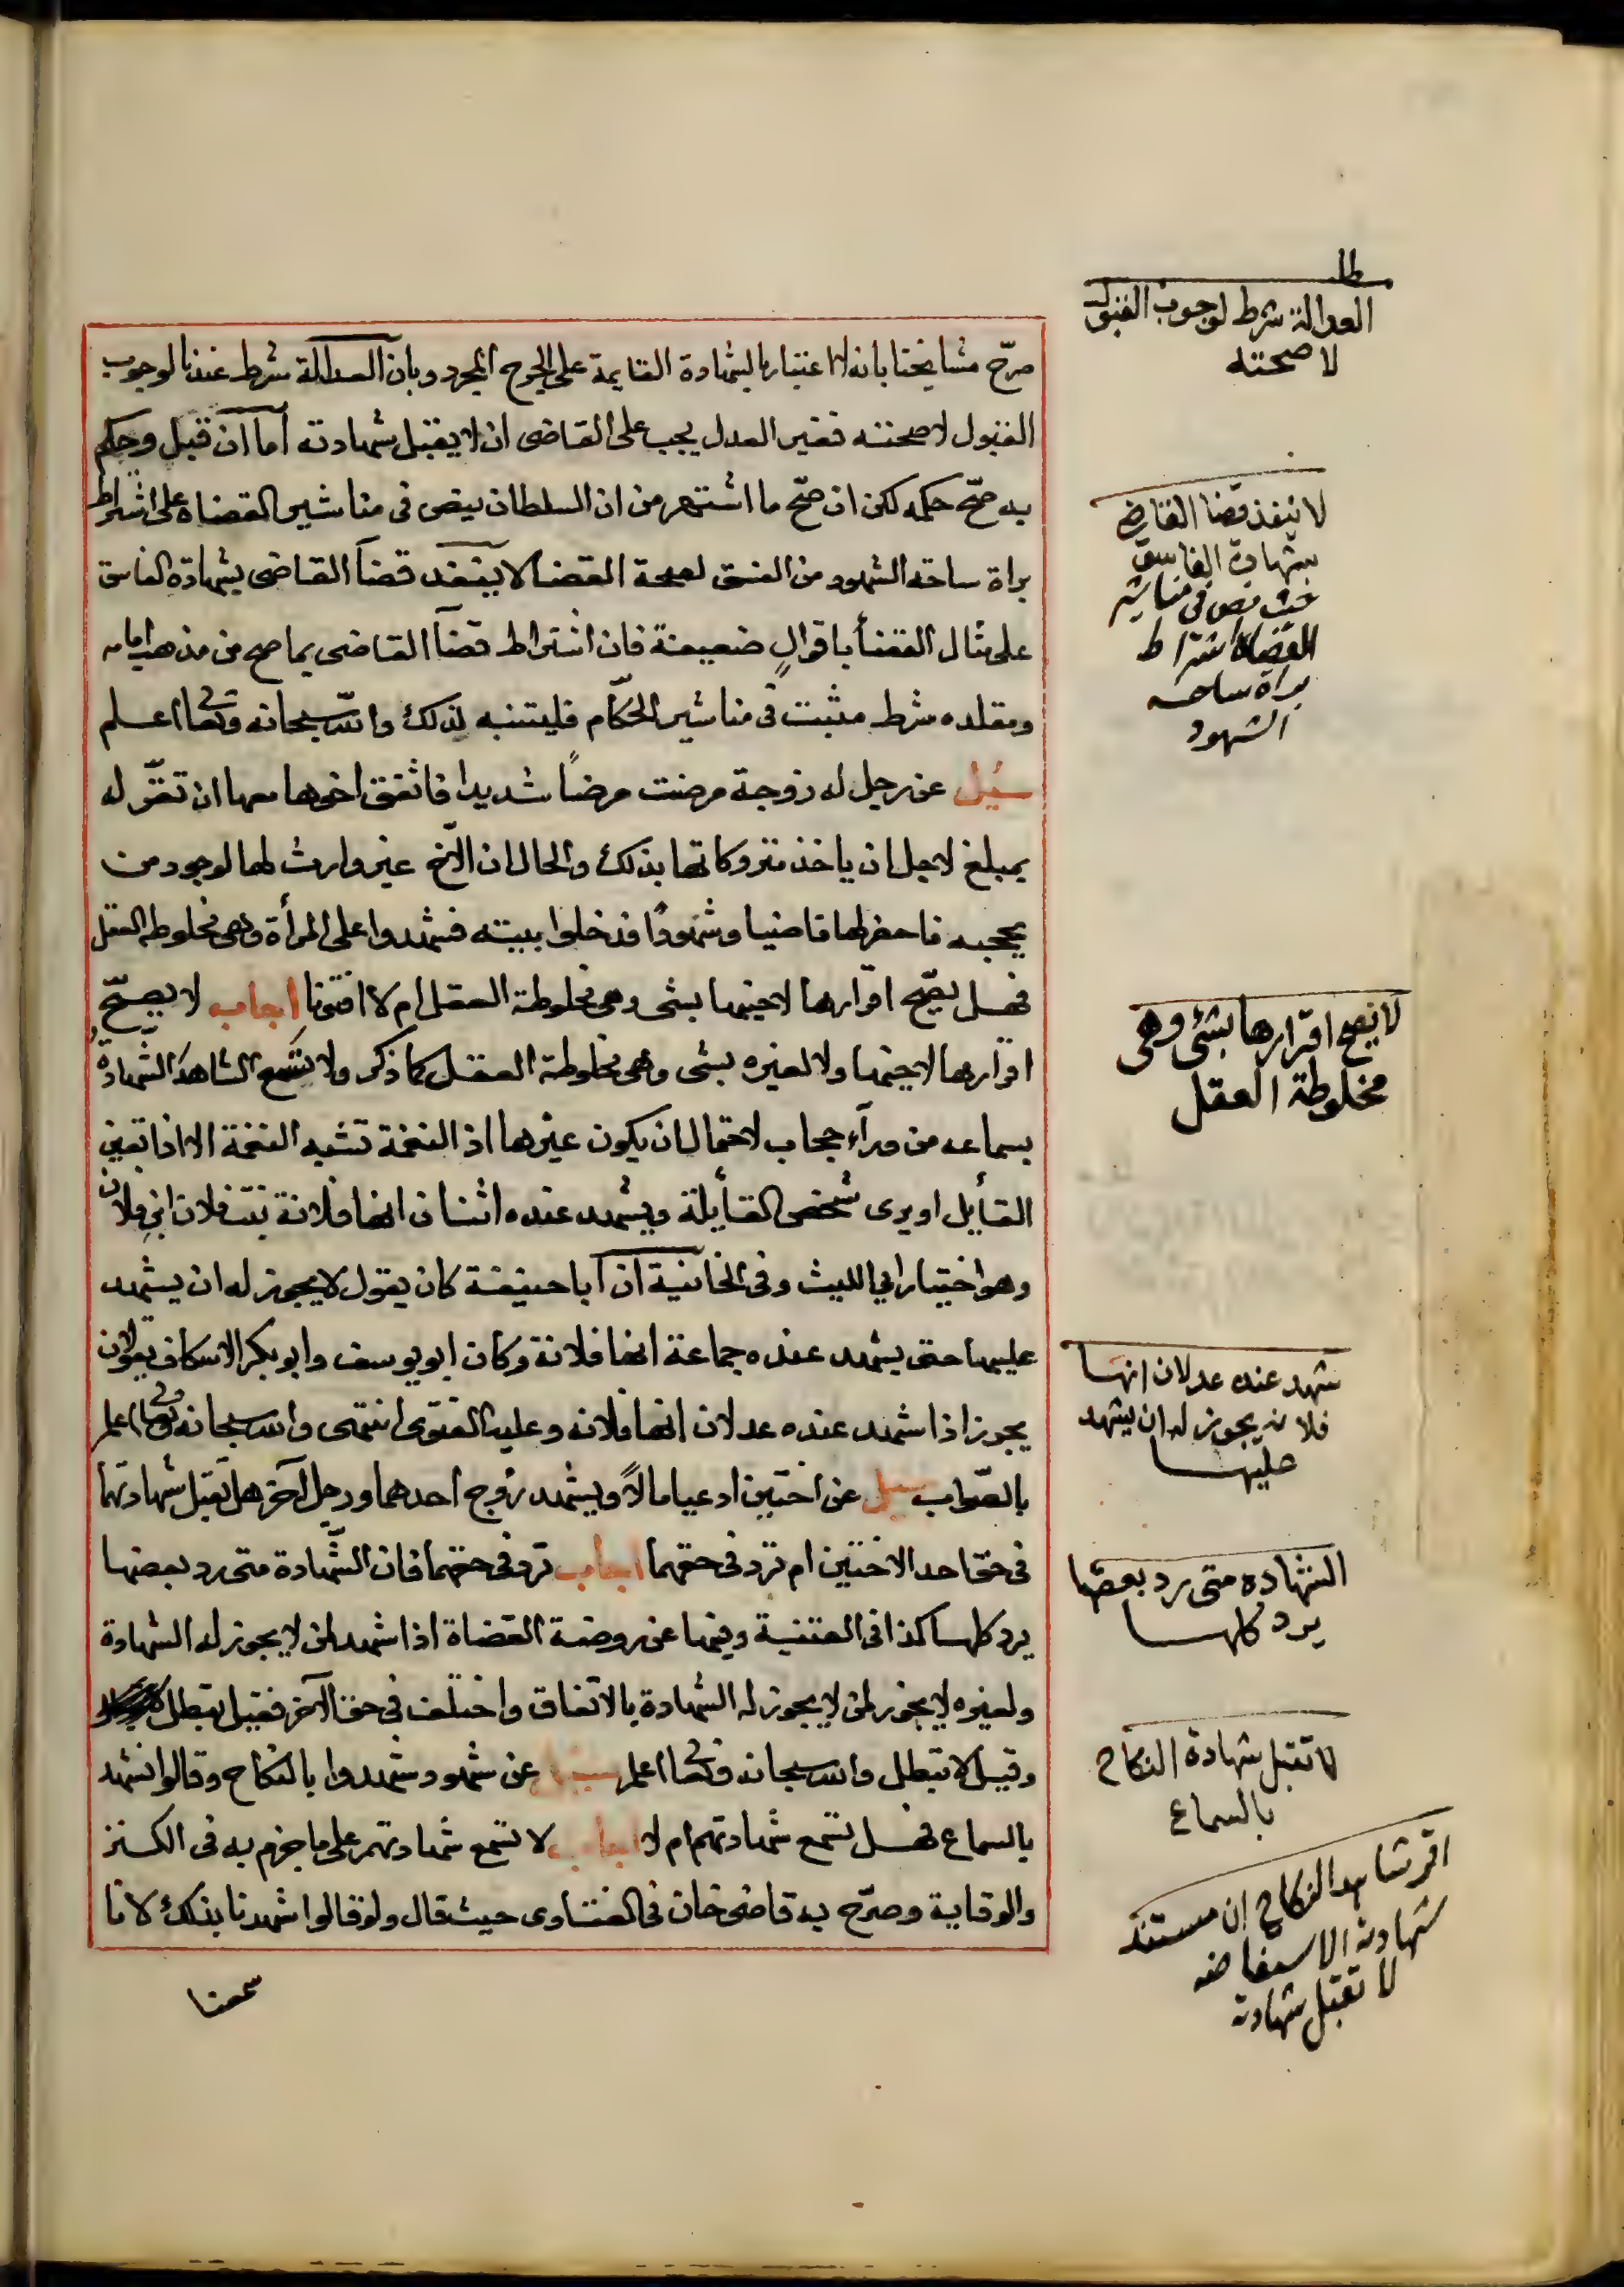 صرّح مشايخنا بانه لا اعتبار بالشهادة القايمة على الجرح المجرد وبان العدالة شرط عندنا لوجوب
القبول لا صحته فغير العدل يجب على القاضى ان لا يقبل شهادته أما ان قبل وحكم
به صحّ حكمه لكن ان صحّ ما اشتهر من ان السلطان ينص فى مناشير القضاة على اشتراط
براة ساحة الشهود من الفسق لصحة القضا لا ينفذ قضآ القاضى بشهادة الفاسق
على مثال القضأ باقوالٍ ضعيفة فان اشتراط قضآ القاضى بما صح من مذهب امامه
ومقلده شرط مثبت فى مناشير الحكّام فليتنبه لذلك والله سبحانه وتعا اعلم
سئيل عن رجل له زوجة مرضت مرضًا شديدا فاتفق اخوها معها ان تقرّ له
بمبلغ لاجل ان ياخذ متروكاتها بذلك والحال ان الأخ غير وارث لها لوجود من
يحجبه فاحضر لها قاضيا وشهودًا فدخلوا ببيته فشهدوا على المرأة وهى مخلوطة العقل
فهل يصّح اقرارها لاخيها بشى وهى مخلوطة العقل ام لا افتونا اجاب لا يصحّ
اقرارها لاخيها ولا لغيره بشى وهى مخلوطة العقل كما ذكر ولا يسَع الشاهدَ الشّهادةُ
بسماعه من ورآء حجاب لاحتمال ان يكون غيرها اذ النغمة تشبه النغمة الا اذا تعين
القأيل او يرى شخص القأيلة ويشهد عنده اثنان انها فلانة بنت فلان ابنِ فلان
وهو اختيار ابي الليث وفى الخانية ان ابا حنيفة كان يقول لا يجوز له ان يشهد
عليها حتى يشهد عنده جماعة انها فلانة وكان ابو يوسف وابو بكر الاسكاف يقولان
يجوز اذا شهد عنده عدلان انها فلانه وعليه الفتوى انتهى والله سبحانه وتعا اعلم
بالصّواب سيل عن اختين ادعيا مالاً ويشهد زوج احدهما ورجل آخر هل تقبل شهادتهما
فى حق احد الاختين ام ترد فى حقهما اجاب ترد فى حقهما فان الشّهادة متى رد بعضها
يرد كلها كذا فى القنية وفيها عن روضة القضاة اذا شهد لمن لا يجوز له الشهادة
ولغيره لا يجوز لمن لا يجوز له الشهادة بالاتفاق واختلف فى حق الآخر فقيل تبطل
وقيل لا تبطل والله سبحانه وتعا اعلم سيل عن شهود شهدوا بالنكاح وقالوا نشهد
بالسماع فهل تسمع شهادتهم ام لا اجاب لا تسمع شهادتهم على ما جزم به فى الكنز
والوقاية وصرّح به قاضى خان فى الفتاوى حيث قال ولو قالوا شهدنا بذلك لانا
سمعنا
العدالة شرط لوجوب القبول
لا صحته
لا ينفذ قضا القاضي
بشهادة الفاسق
حيث نص فى مناشير
القضاة اشتراط
براة ساحة
الشهود
لا يصح اقرارها بشئ وهى
مخلوطة العقل
شهد عنده عدلان انها
فلانه يجوز له ان يشهد
عليها
الشهاده متى رد بعضها
يرد كلها
لا تقبل شهادة النكاح
بالسماع
اقر شاهد النكاح ان مستند
شهادته الاستفاضه
لا تقبل شهادته